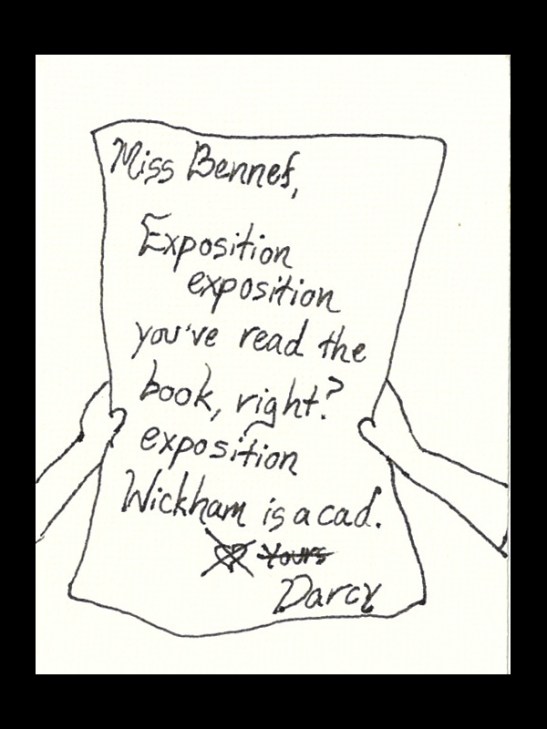 Miss Bennet,
Exposition
exposition
you've read the
book, right?
exposition
Wickham is a cad.
Yours
Darcy